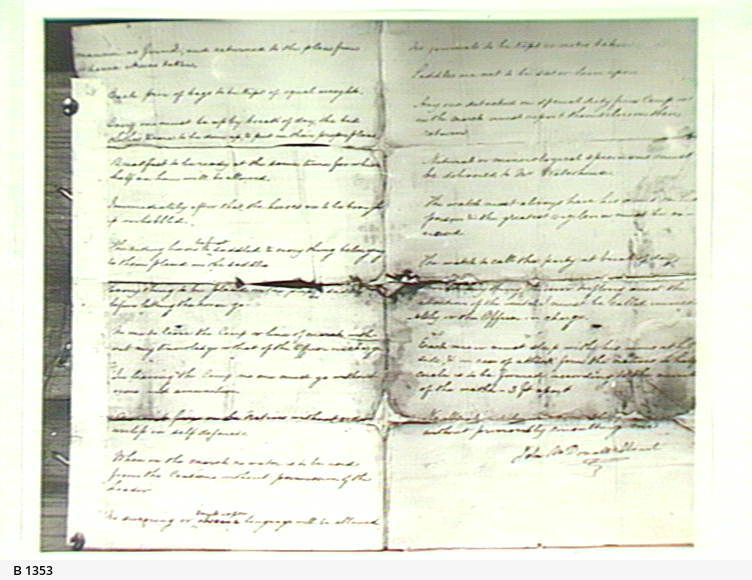 manner as found, and returned to the place from
whence it was taken.
Each pair of bags to be kept of equal weight.
Every one must be up by break of day, the bed
to be done up, & put in their proper place
Breakfast to be ready at the same time for which
half an hour will be allowed.
Immediately after that the horses are to be brought
up unhobbled.
The riding horses to be saddled & every thing belonging
to them placed on the saddle
before letting the horse go.
No one to leave the Camp or line of march with
out my knowledge or that of the Officer next
In leaving the Camp no one must go without
arms and ammunition.
fire on the Natives without orders
unless in self defence.
When on the march no water is to be used
from the Canteens without permission of the
Leader
No swearing or improper language will be allowed
No journals to be kept or notes taken
Saddles are not to be sat or lain upon
Any one detached on special duty from Camp or
on the march must report themselves on their
return.
Natural or mineralogical specimens must
be delivered to Mr Waterhouse.
The watch must always have his arms on his
person & the greatest vigilance must be
The watch to call the party at break of day
of the watch must be called
or the Officer in charge.
Each man must sleep with his arms at his
side, & in case of attack from the natives a half
circle is to be formed
of the men 3 ft apart
without permission
John McDouall Stuart
B 1353